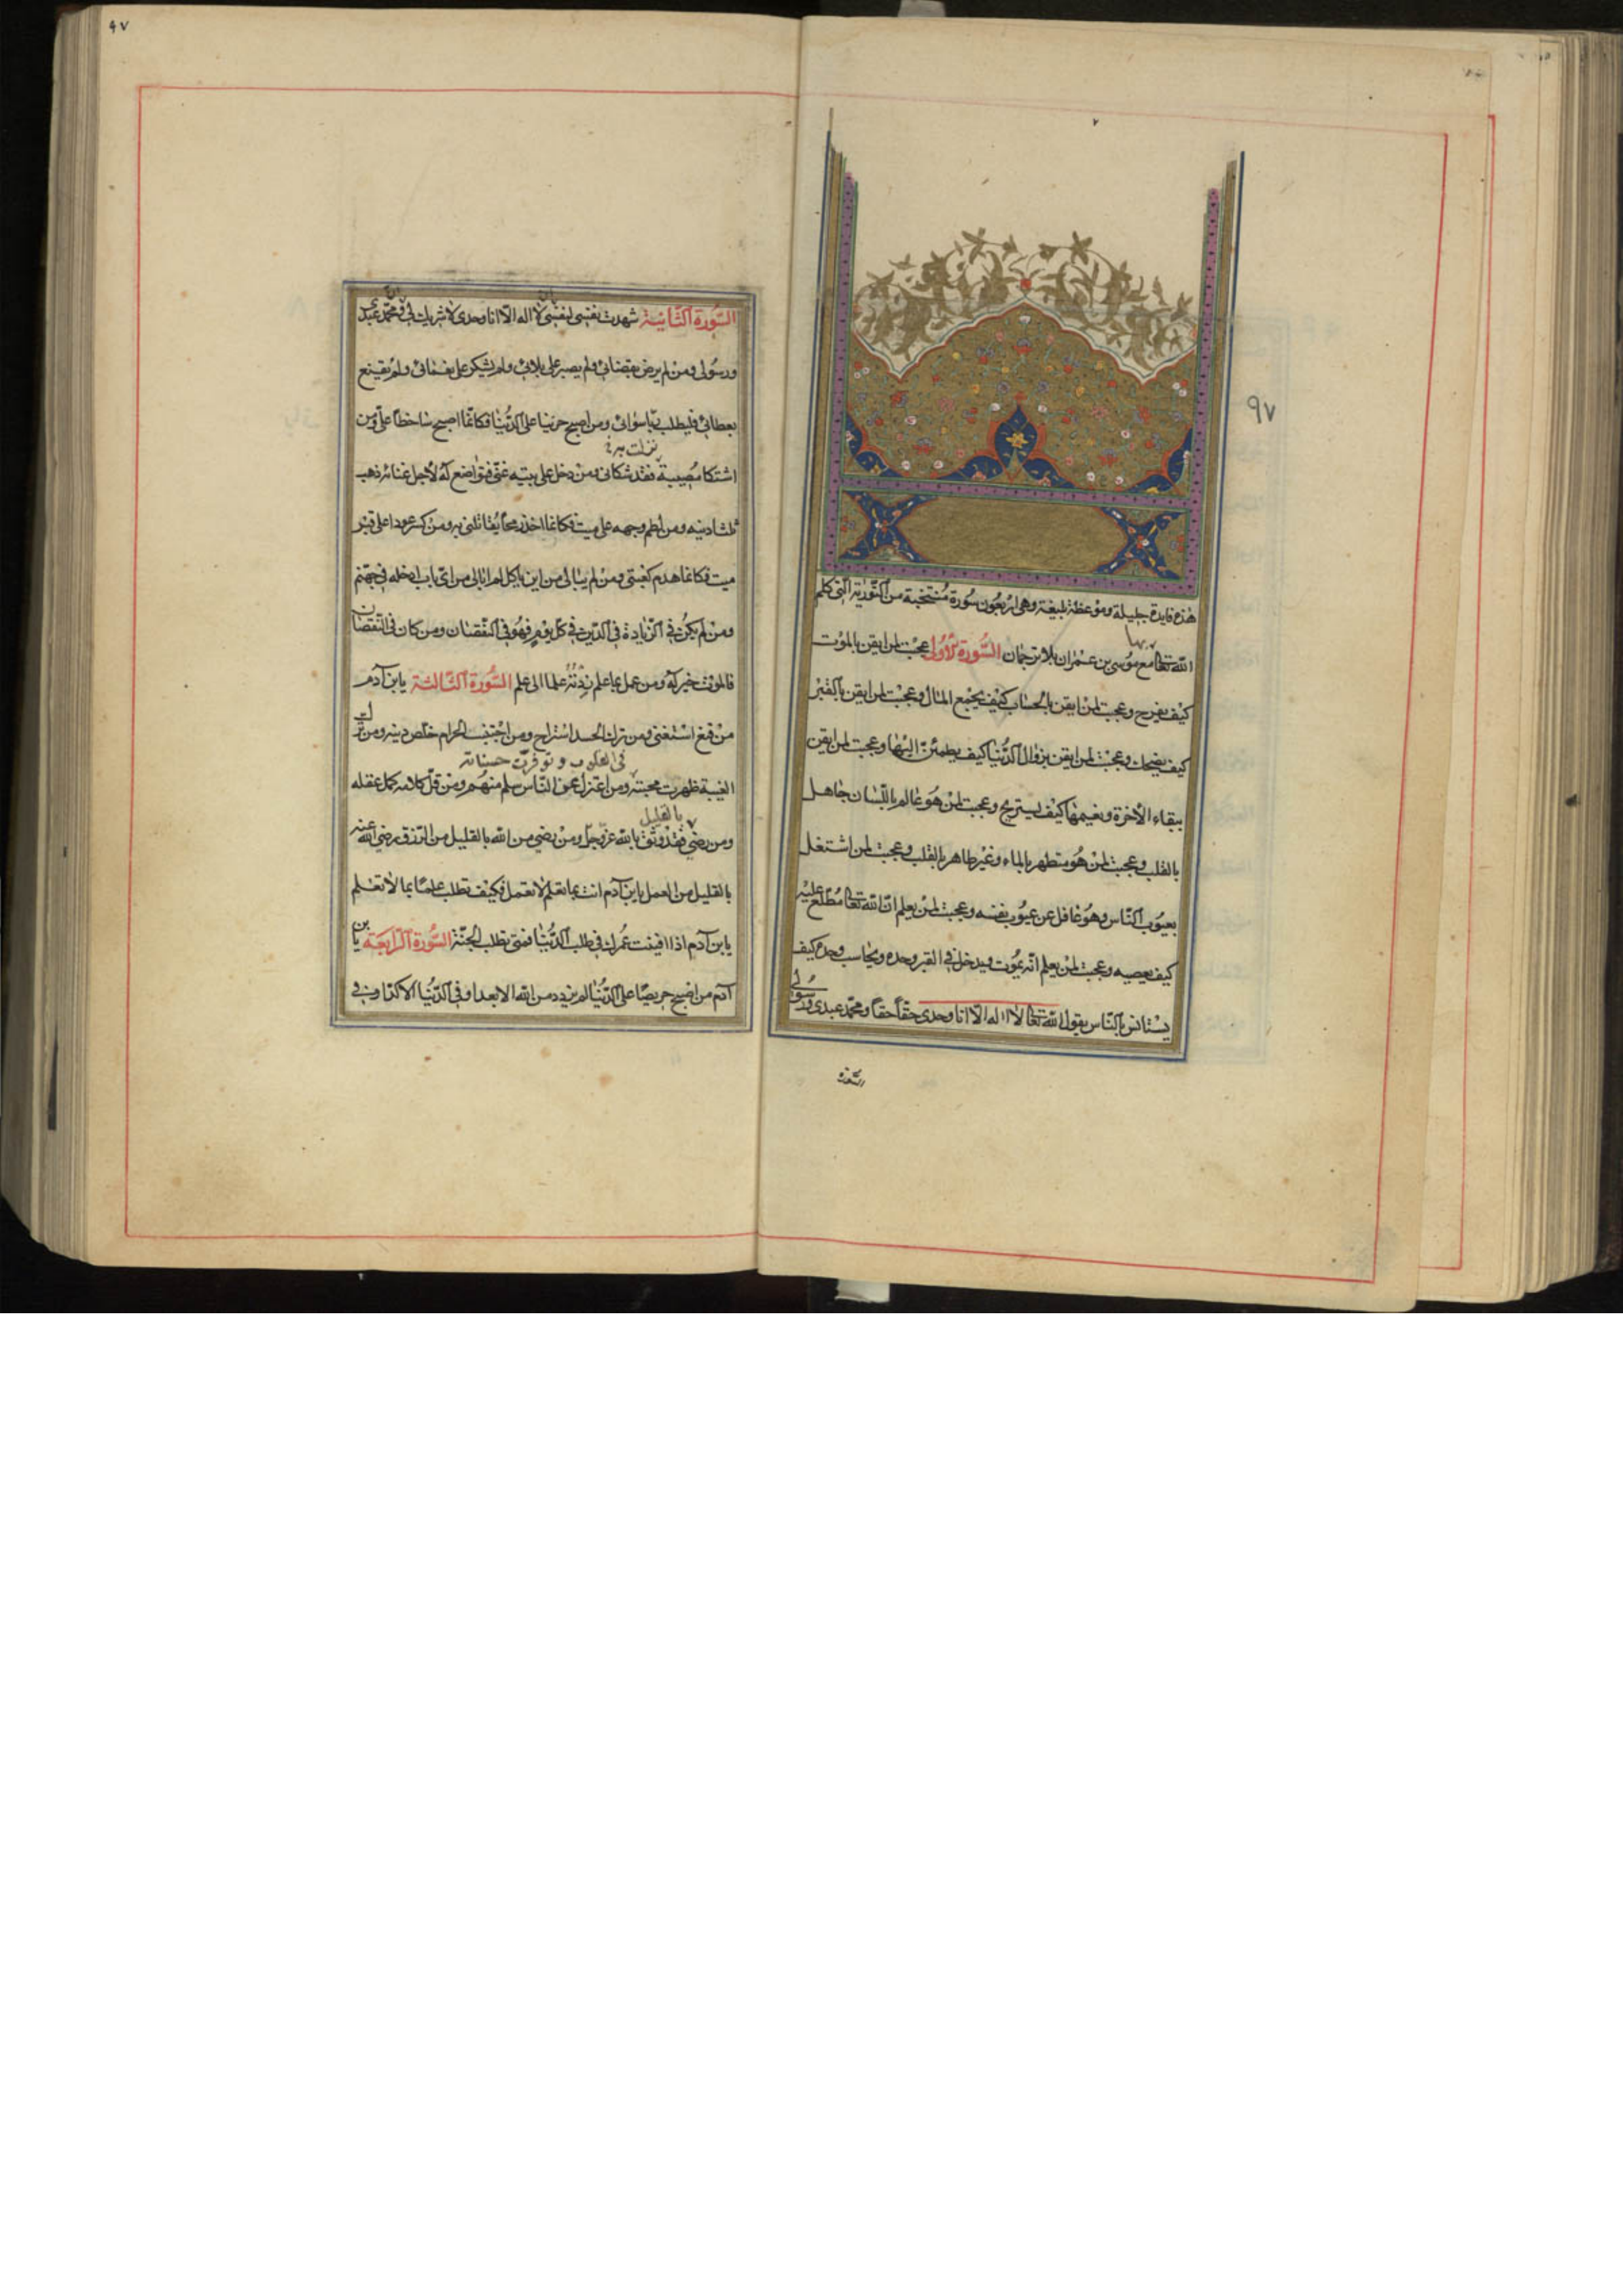 ٩٧
هذه فايدة جليلة وموعظة بليغة وهي اربعون سورة منتخبة من التورية التي كلم
بها
الله تعالى مع موسى بن عمران بلا ترجمان السورة الاولى عجبت لمن ايقن بالموت
كيف يفرح وعجبت لمن ايقن بالحساب كيف يجمع المال وعجبت لمن ايقن بالقبر
كيف يضحك وعجبت لمن ايقن بزوال الدنيا كيف يطمئن اليها وعجبت لمن ايقن
ببقاء الاخرة ونعيمها كيف يستريح وعجبت لمن هو عالم باللسان جاهل
بالقلب وعجبت لمن هو متطهر بالماء وغير طاهر بالقلب وعجبت لمن اشتغل
بعيوب الناس وهو غافل عن عيوب نفسه وعجبت لمن يعلم ان الله تعالى مطلع عليه
كيف يعصيه وعجبت لمن يعلم انه يموت ويدخل في القبر وحده ويحاسب وحده كيف
يستانس بالناس يقول الله تعالى لا اله الا انا وحدي حقا حقا ومحمد عبدي ورسولي
السورة
٩٧
السورة الثانية شهدت نفسي لنفسي لا اله الا انا وحدي لا شريك لي ومحمد عبدي
ورسولي ومن لم يرض بقضائي ولم يصبر على بلائي ولم يشكر على نعمائي ولم يقنع
بعطائي فليطلب ربا سوائي ومن اصبح حزينا على الدنيا فكانما اصبح ساخطا علي ومن
نزلت به
اشتكا مصيبة فقد شكاني ومن دخل على بيته غني فتواضع له لاجل غنائه ذهب
ثلثا دينه ومن لطم وجهه على ميت فكانما اخذ رمحا يقاتلني به ومن كسر عودا على قبر
ميت فكانما هدم كعبتي ومن لم يبالي من اين ياكل لم ابالي من اي باب ادخله في جهنم
ومن لم يكن في الزيادة في الدين في كل يوم فهو في النقصان ومن كان في النقصان
فالموت خير له ومن عمل بما علم زدته علما الى علم السورة الثالثة يابن آدم
من قنع استغنى ومن ترك الحسد استراح ومن اجتنب الحرام خلص دينه ومن ترك
في القلوب وتوفرت حسناته
الغيبة ظهرت محبته ومن اعتزل عن الناس سلم منهم ومن قل كلامه كمل عقله
بالقليل
ومن رضي فقد وثق بالله عز وجل ومن رضي من الله بالقليل من الرزق رضي الله عنه
بالقليل من العمل يابن آدم انت بما تعلم لا تعمل فكيف تطلب علما بما لا تعلم
يابن آدم اذا افنيت عمرك في طلب الدنيا فمتى تطلب الجنة السورة الرابعة يا بن
آدم من اصبح حريصا على الدنيا لم يزدد من الله الا بعدا وفي الدنيا الا كدا وفي